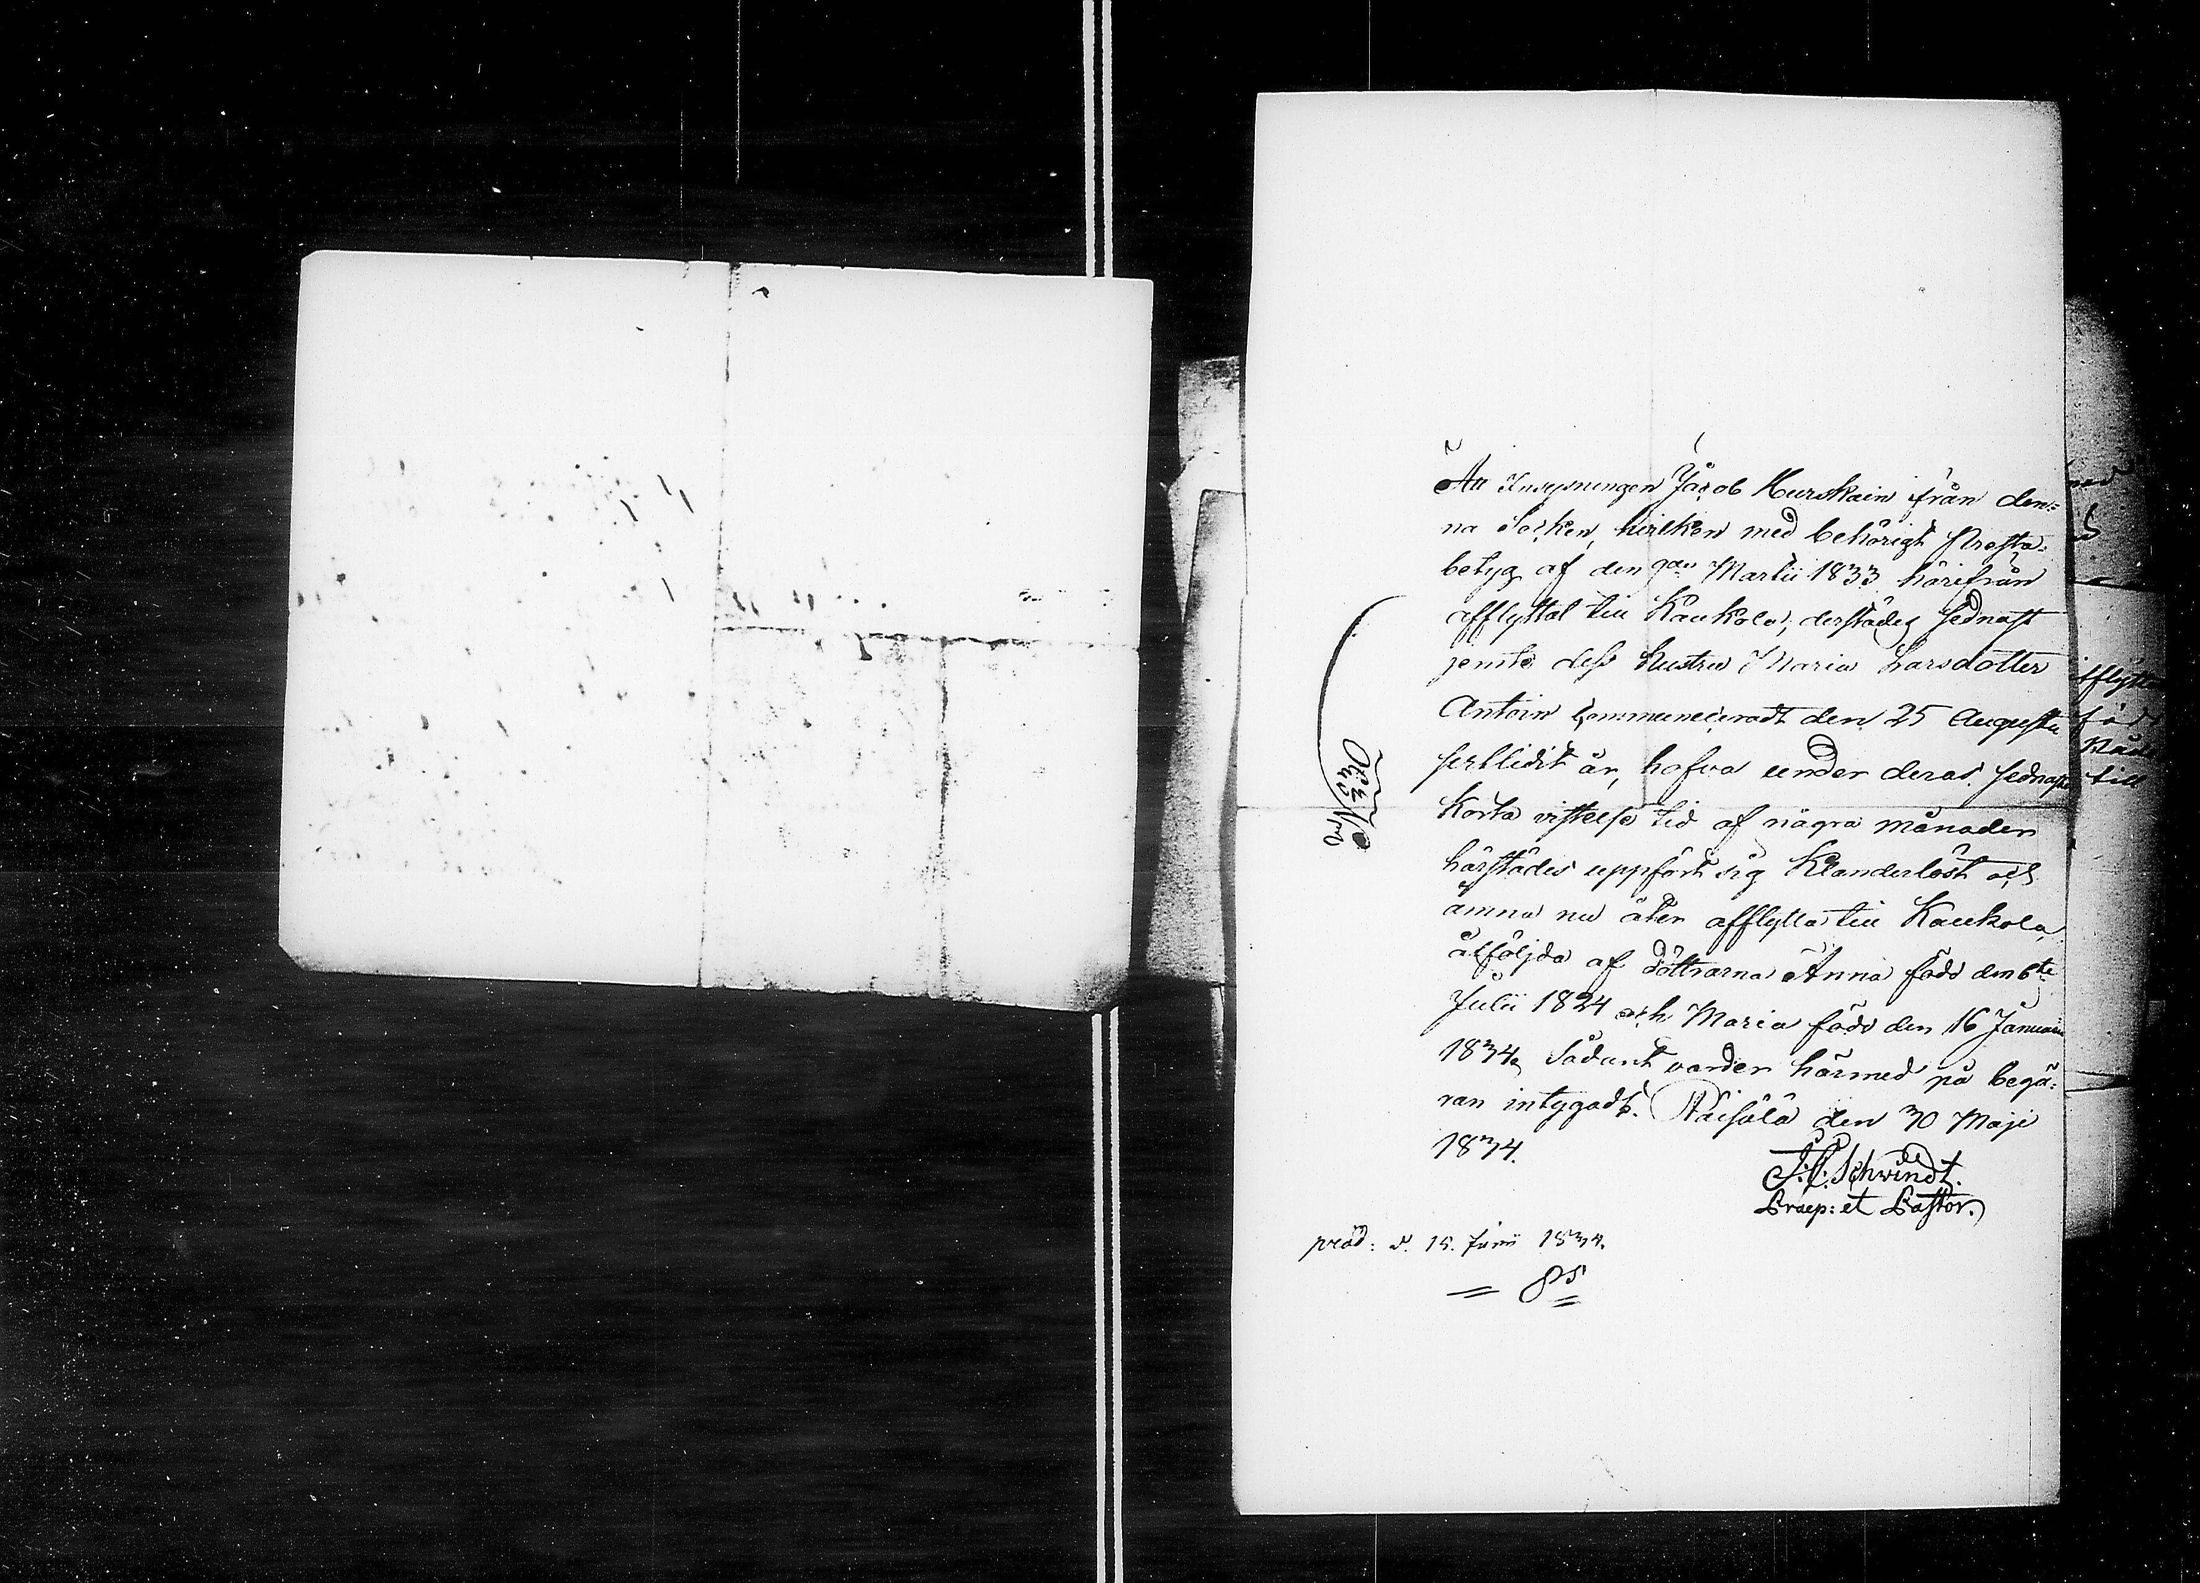 Att Inhysningen Jacob Kurskain från den-
na Socken, hvilken med behörigt Presta-
betyg af den 9de Martii 1833 härifrån
afflyttat till Kaukola, derstädes sednast
jemte dess hustru Maria Larsdotter
Antoin Communicerat den 25 Augusti
sistlidit år, hafva under deras sednaste
korta vistelse tid af några månader
härstädes uppfört sig klanderlöst och
ämna nu åter afflytta till Kaukola,
åtföljda af döttrarna Anna född den 6te
Julii 1824 och Maria född den 16 Januarii
1834, Sådant varder härmed på begä-
ran intygadt. Räisälä den 30 Maji
1834.
J. C. Schwindt.
Praep: et Pastor.
prod: d. 15. Junii 1834.